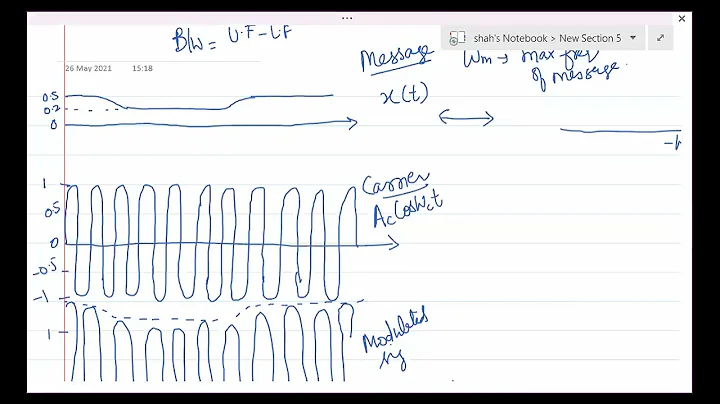 B/W = U.F - L.F
shah's Notebook > New Section 5
26 May 2021 15:18
Message
Wm → max freq
of message.
x(t)
0.5
0.2
0
Carrier
Ac Cos Wct
1
0.5
0
-0.5
-1
1
Modulated
sig